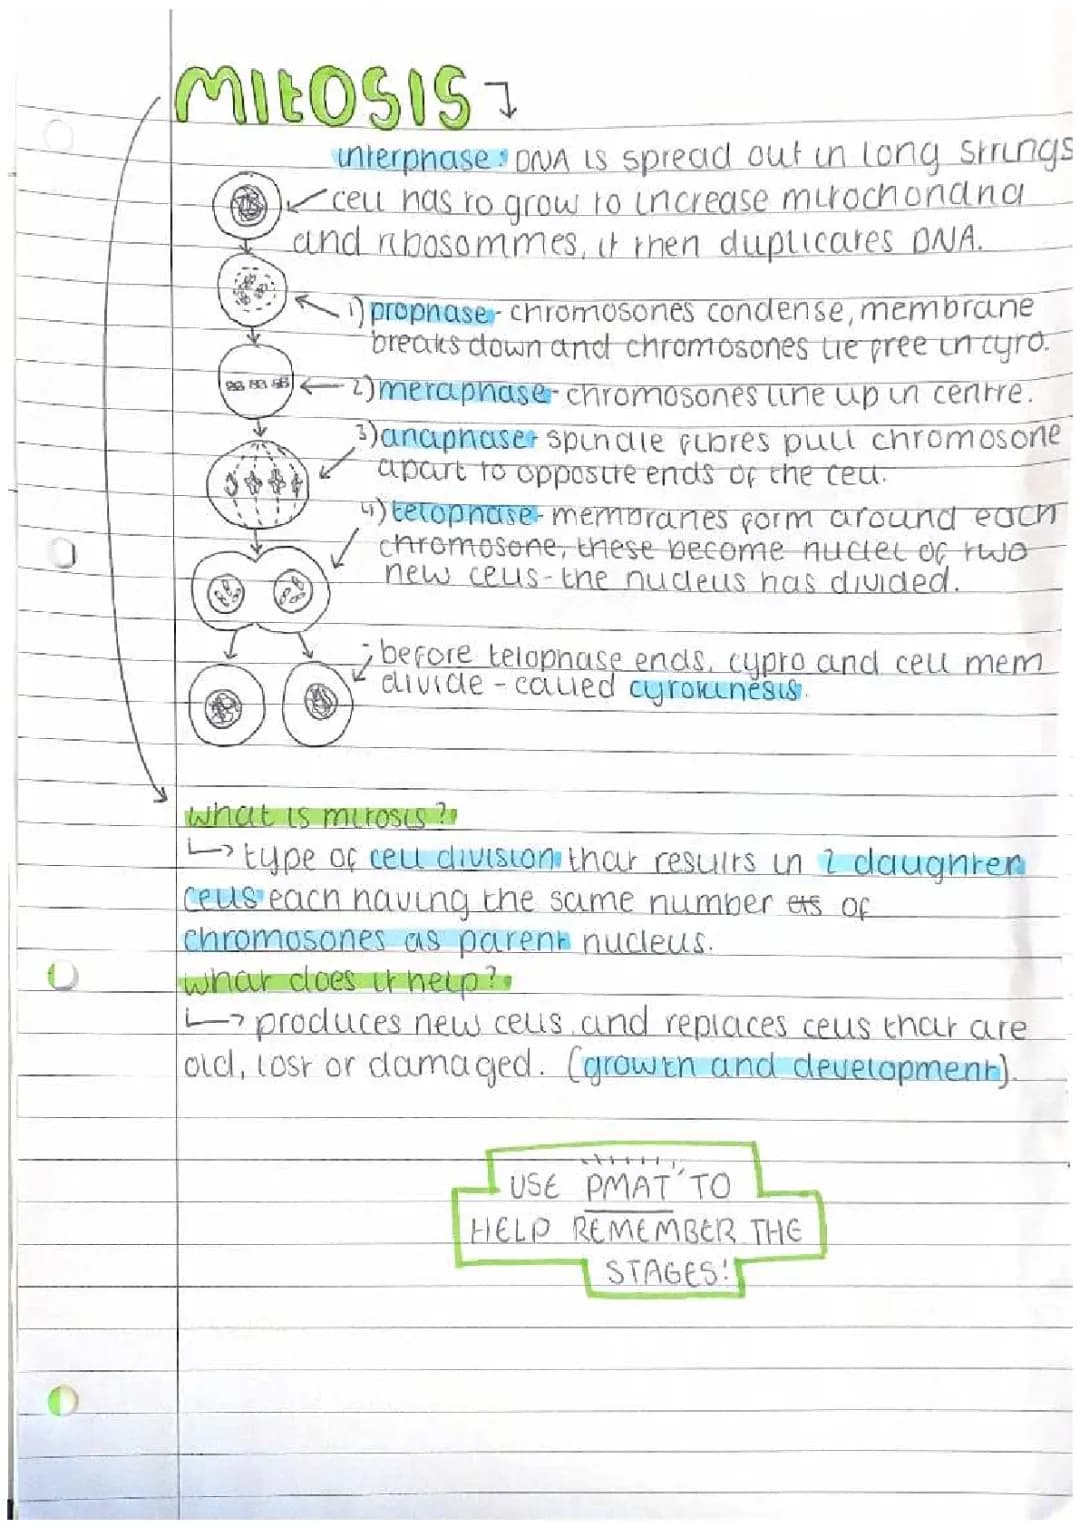 MITOSIS
interphase: DNA is spread out in long strings
cell has to grow to increase mitochondria
and ribosommes, it then duplicates DNA.
1) prophase - chromosones condense, membrane
breaks down and chromosones lie free in cyto.
2) metaphase - chromosones line up in centre.
3) anaphase - spindle fibres pull chromosone
apart to opposite ends of the cell.
4) telophase - membranes form around each
chromosone, these become nuclei of two
new cells - the nucleus has divided.
- before telophase ends, cypto and cell mem
divide - called cytokinesis.
what is mitosis?
type of cell division that results in 2 daughter
cells each having the same number of
chromosones as parent nucleus.
what does it help?
produces new cells and replaces cells that are
old, lost or damaged. (growth and development).
USE PMAT TO
HELP REMEMBER THE
STAGES!